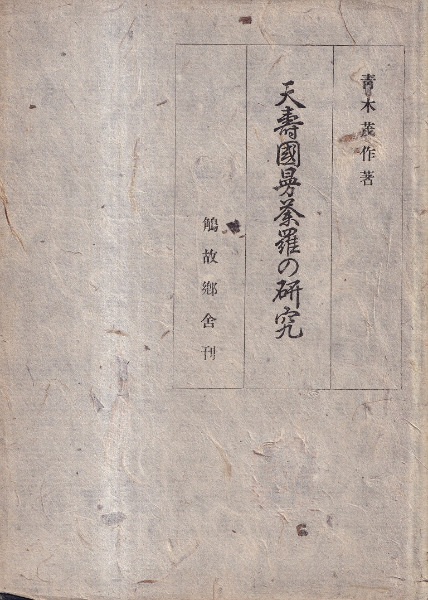 青木茂作著
天壽國曼荼羅の研究
鵤故郷舎刊